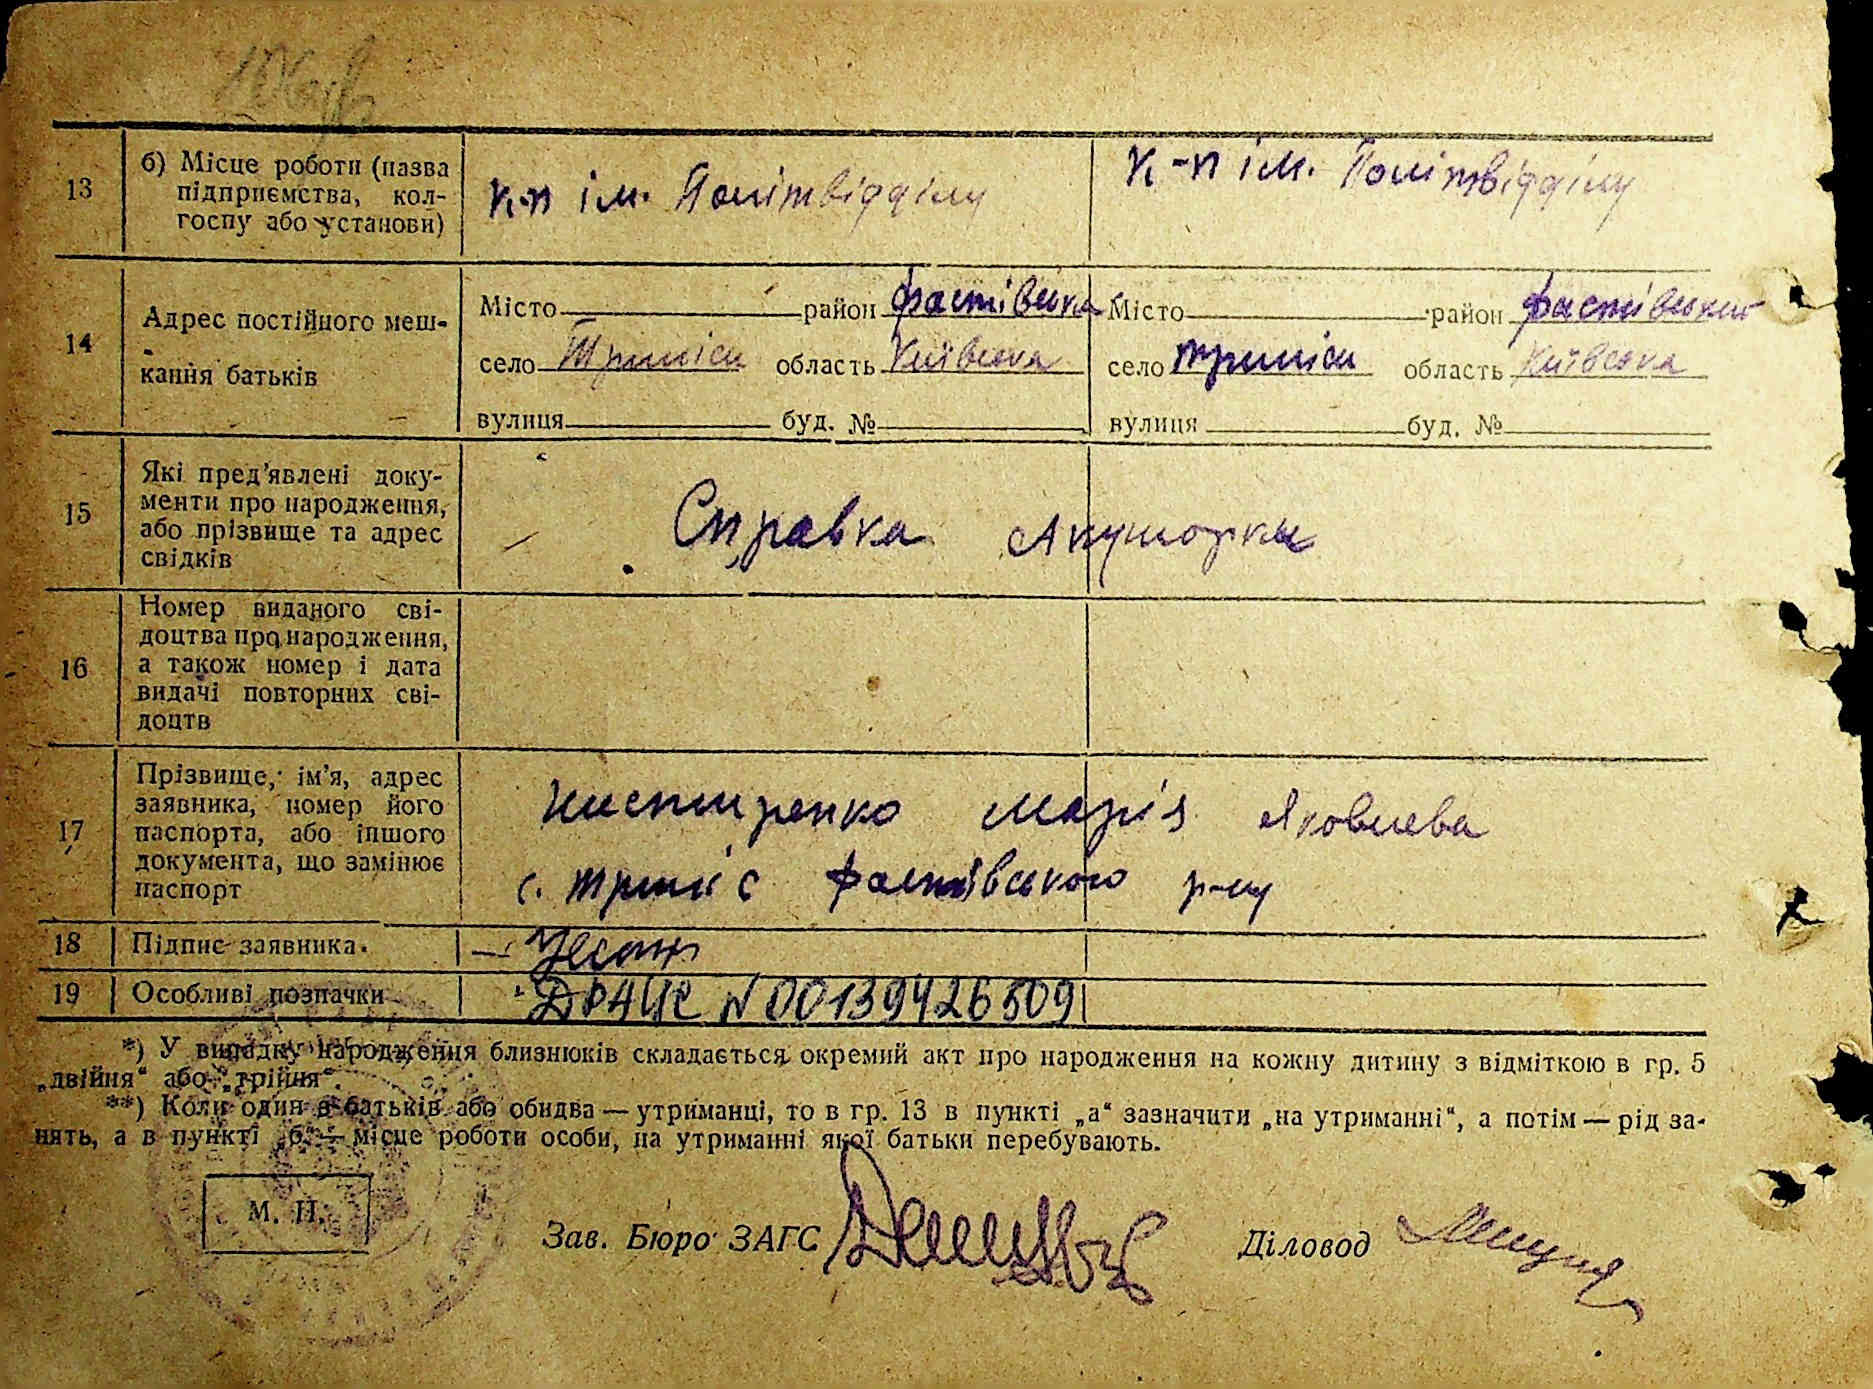 13
б) Місце роботи (назва
підприємства, кол-
госпу або установи)
к-п ім. Політвідділу
к-п ім. Політвідділу
14
Адрес постійного меш-
кання батьків
Місто район Фастівська
село Триліси область Київська
вулиця буд. №
Місто район Фастівський
село Триліси область Київська
вулиця буд. №
15
Які пред'явлені доку-
менти про народження,
або прізвище та адрес
свідків
Справка Акушорки
16
Номер виданого сві-
доцтва про народження,
а також номер і дата
видачі повторних сві-
доцтв
17
Прізвище, ім'я, адрес
заявника, номер його
паспорта, або іншого
документа, що замінює
паспорт
Марія Яковлева
с. Триліс Фастівського р-ну
18
Підпис заявника.
19
Особливі позначки
ДРАЦС N 00139426509
*) У випадку народження близнюків складається окремий акт про народження на кожну дитину з відміткою в гр. 5
„двійня“ або „трійня“.
**) Коли один з батьків або обидва — утриманці, то в гр. 13 в пункті „а“ зазначити „на утриманні“, а потім — рід за-
нять, а в пункті „б“ — місце роботи особи, на утриманні якої батьки перебувають.
М. П.
Зав. Бюро ЗАГС
Діловод